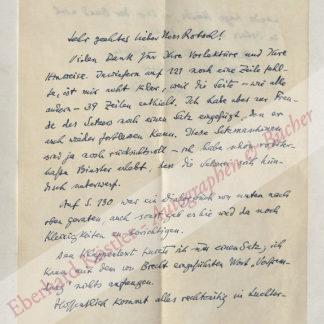 Sehr geehrter lieber Herr Rotsch!
Vielen Dank für Ihre Vorlektüre und Ihre
Hinweise. Inwiefern auf 121 noch eine Zeile fehl-
te, ist mir nicht klar, weil die Seite – wie alle
andern – 39 Zeilen enthielt. Ich habe aber zur Freu-
de des Setzers noch einen Satz eingefügt, den er
auch wieder fortlassen kann. Diese Setzmaschinen
sind ja noch rücksichtsvoll – ich habe
Biester erlebt, denen die Setzer sich hün-
disch unterwerf.
Auf S. 130 war ein von unten nach
oben geraten, auch sonst gab es hie und da noch
Kleinigkeiten zu berichtigen.
Den Klappentext kürzte ich um einen Satz, ich
kann mit dem von Brecht eingeführten Wort
nichts anfangen.
Hoffentlich kommt alles rechtzeitig in Luchter-
Eberhard Köstler - Autographen & Bücher